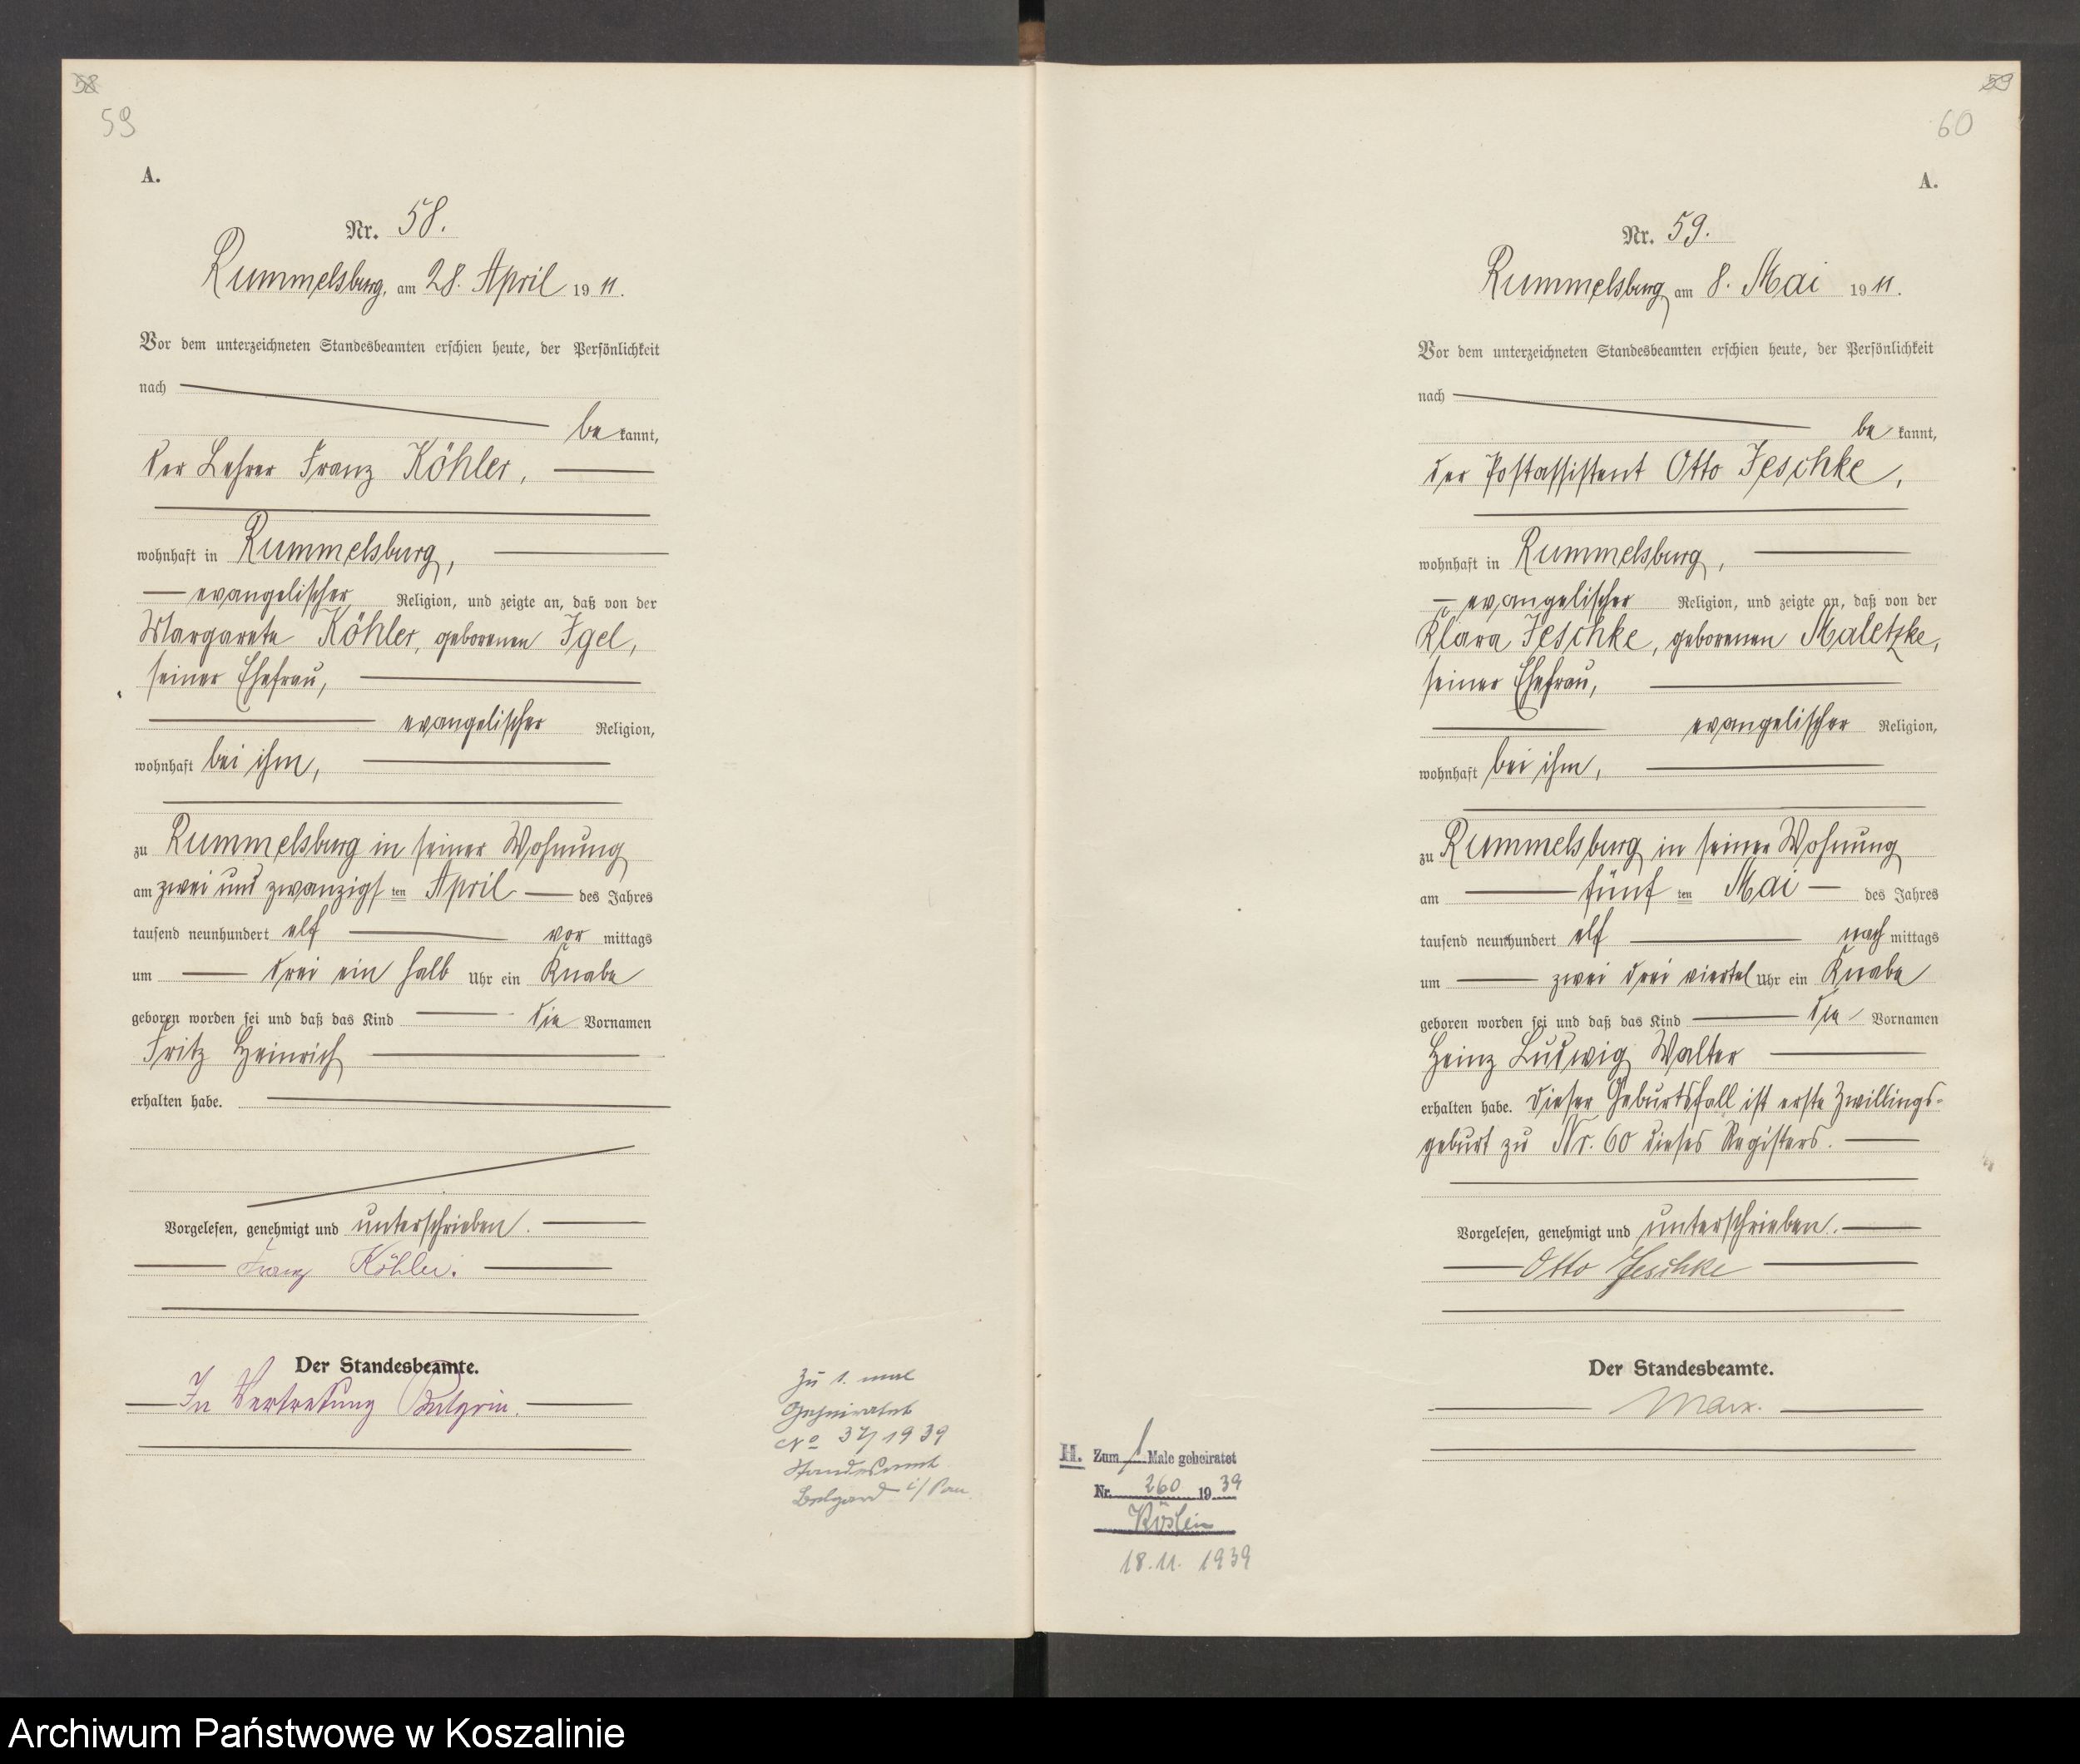 58
59
A.
Nr. 58.
Rummelsburg, am 28. April 1911.
Vor dem unterzeichneten Standesbeamten erschien heute, der Persönlichkeit
nach
bekannt,
der Lehrer Franz Köhler,
wohnhaft in Rummelsburg,
evangelischer Religion, und zeigte an, daß von der
Margarete Köhler, geborenen Igel,
seiner Ehefrau,
evangelischer Religion,
wohnhaft bei ihm,
zu Rummelsburg in seiner Wohnung
am zwei und zwanzigsten April des Jahres
tausend neunhundert elf vormittags
um drei ein halb Uhr ein Knabe
geboren worden sei und daß das Kind die Vornamen
Fritz Heinrich
erhalten habe.
Vorgelesen, genehmigt und unterschrieben.
Franz Köhler.
Der Standesbeamte.
In Vertretung
Zu 1. mal
Geheiratet
No 37/1939
Standesamt
Belgard i/Pom
59
60
A.
Nr. 59.
Rummelsburg, am 8. Mai 1911.
Vor dem unterzeichneten Standesbeamten erschien heute, der Persönlichkeit
nach
bekannt,
der Postassistent Otto Jeschke,
wohnhaft in Rummelsburg,
evangelischer Religion, und zeigte an, daß von der
Klara Jeschke, geborenen Maletzke,
seiner Ehefrau,
evangelischer Religion,
wohnhaft bei ihm,
zu Rummelsburg in seiner Wohnung
am fünften Mai des Jahres
tausend neunhundert elf nachmittags
um zwei drei viertel Uhr ein Knabe
geboren worden sei und daß das Kind die Vornamen
Heinz Ludwig Walter
erhalten habe. Dieser Geburtsfall ist erste Zwillings-
geburt zu Nr. 60 dieses Registers.
Vorgelesen, genehmigt und unterschrieben.
Otto Jeschke
Der Standesbeamte.
Marx.
H. Zum 1 Male geheiratet
Nr. 260 1939
Köslin
18.11. 1939
Archiwum Państwowe w Koszalinie